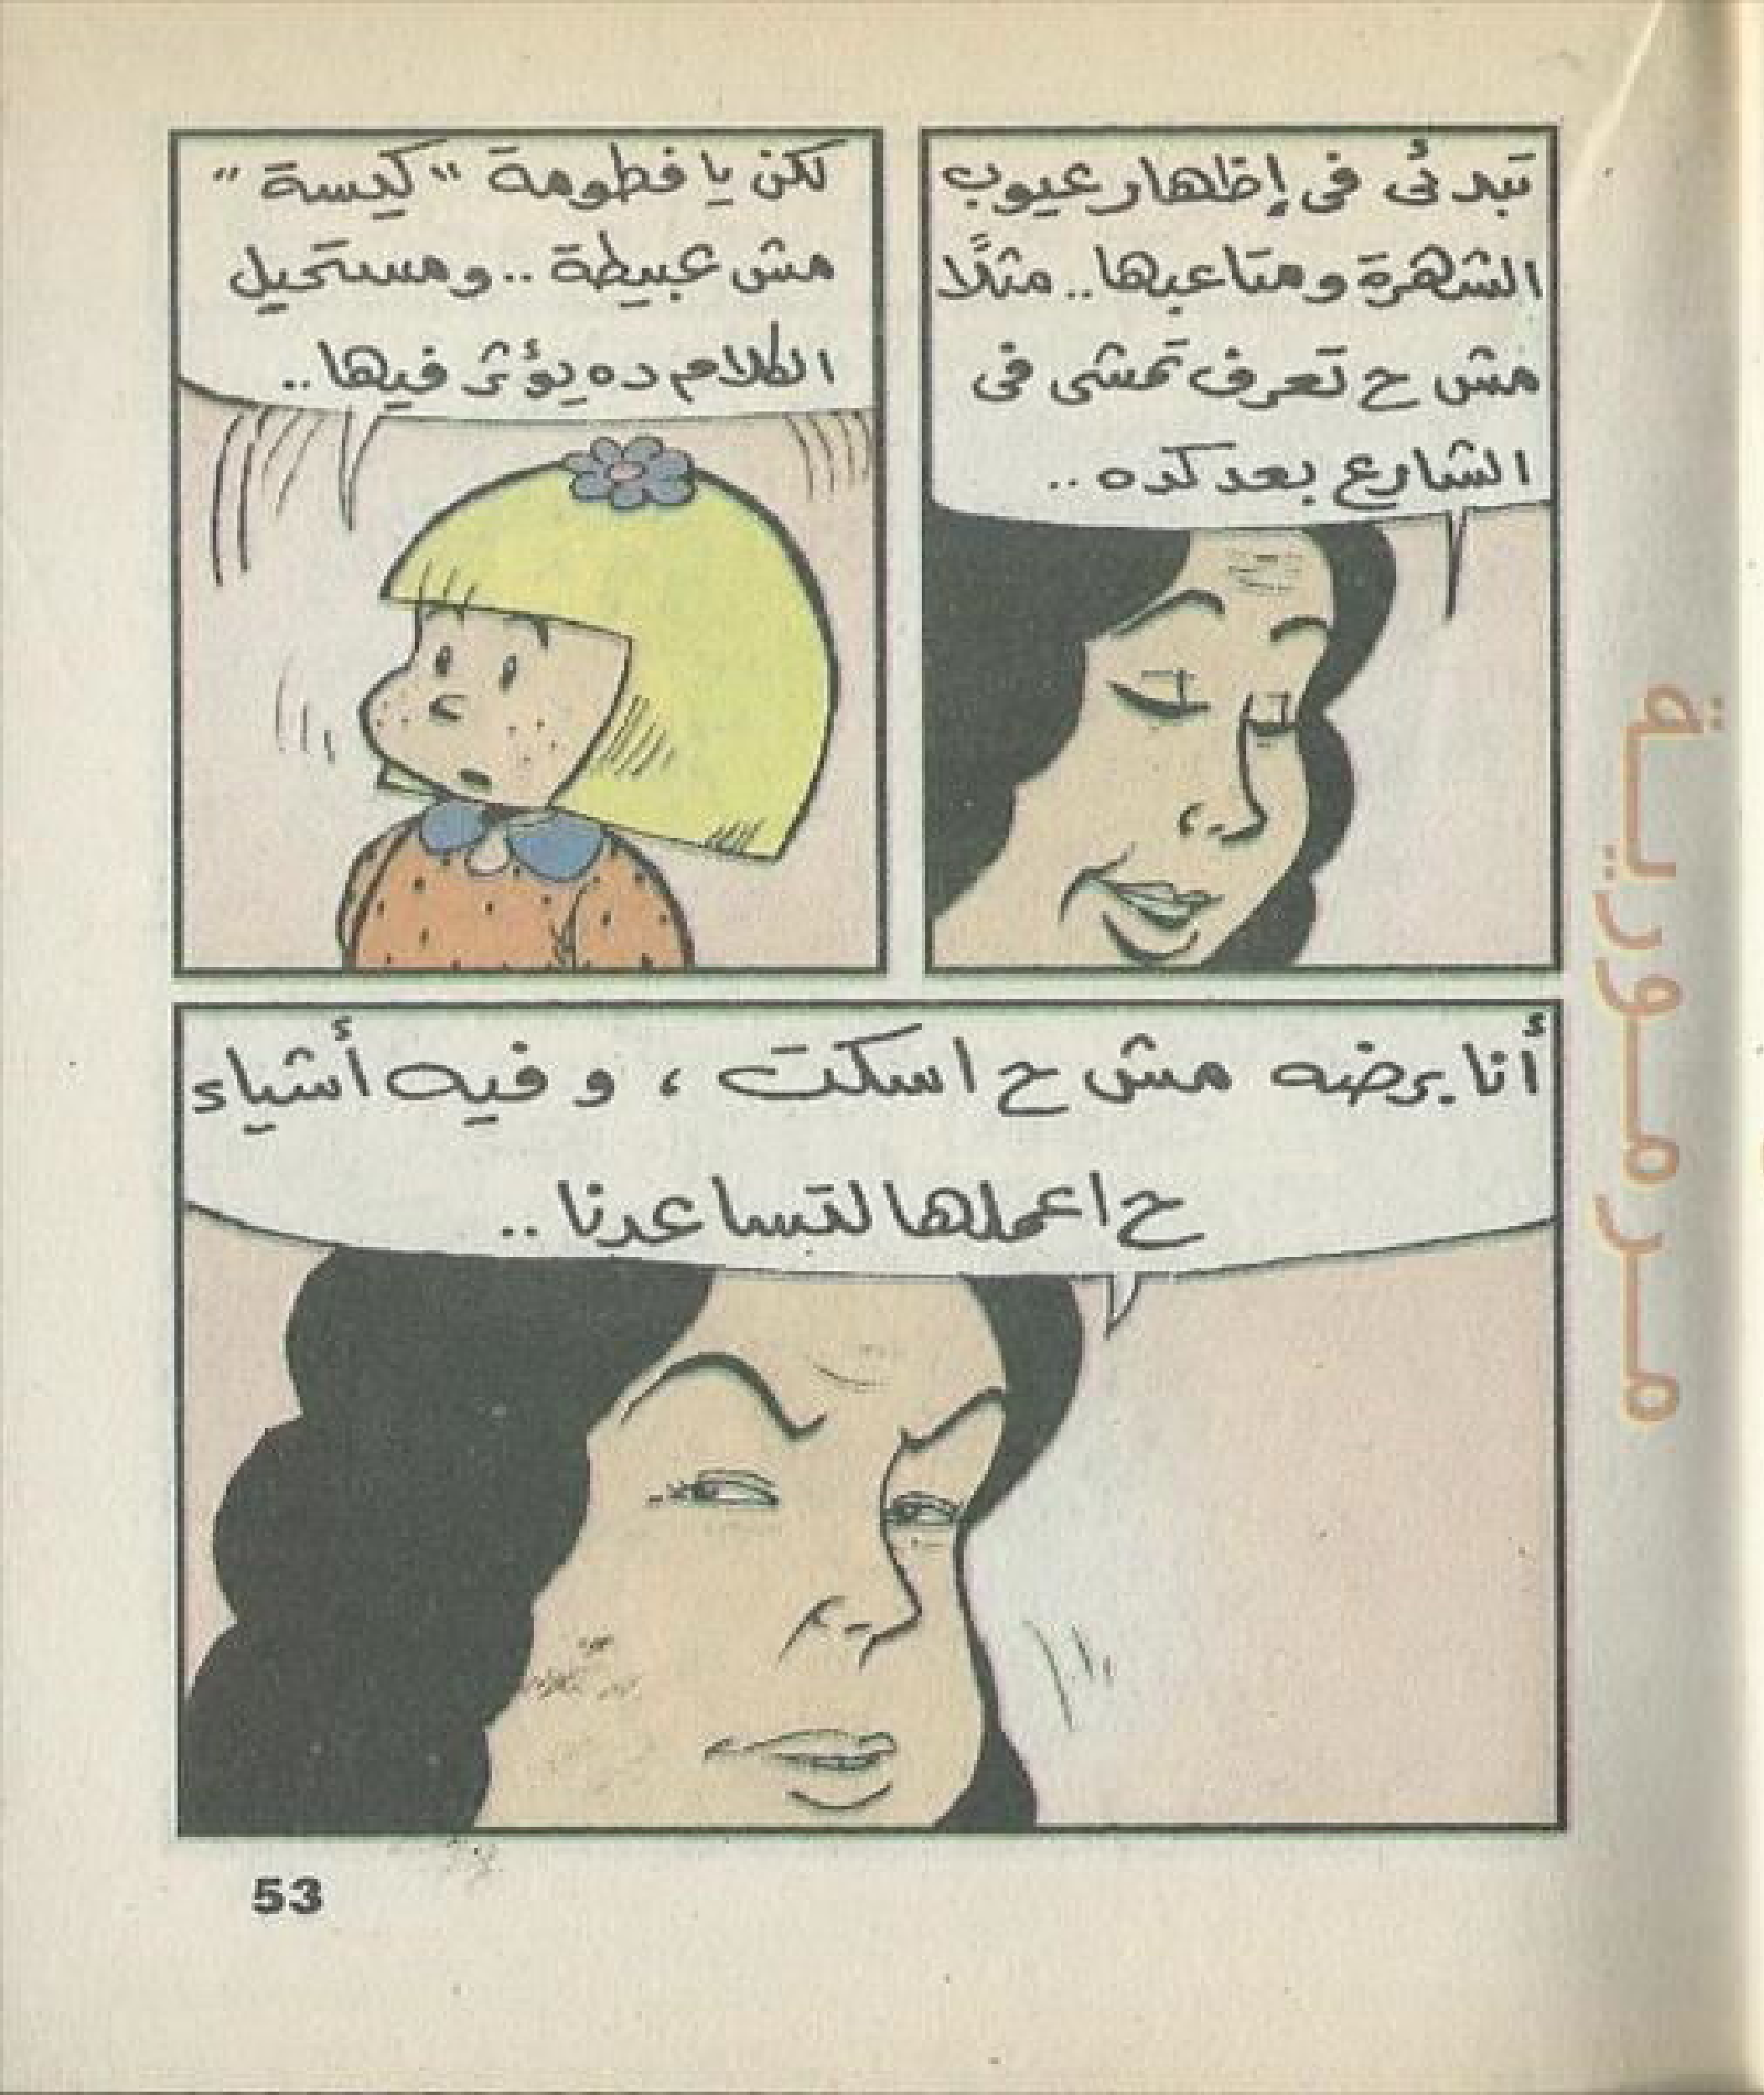 تبدئى فى إظهار عيوب
الشهرة ومتاعبها.. مثلًا
مش ح تعرف تمشى فى
الشارع بعد كده ..
لكن يا فطومة "كيسة"
مش عبيطة .. ومستحيل
الكلام ده يؤثر فيها ..
أنا برضه مش ح اسكت ، وفيه أشياء
ح اعملها لتساعدنا ..
مرمورية
53